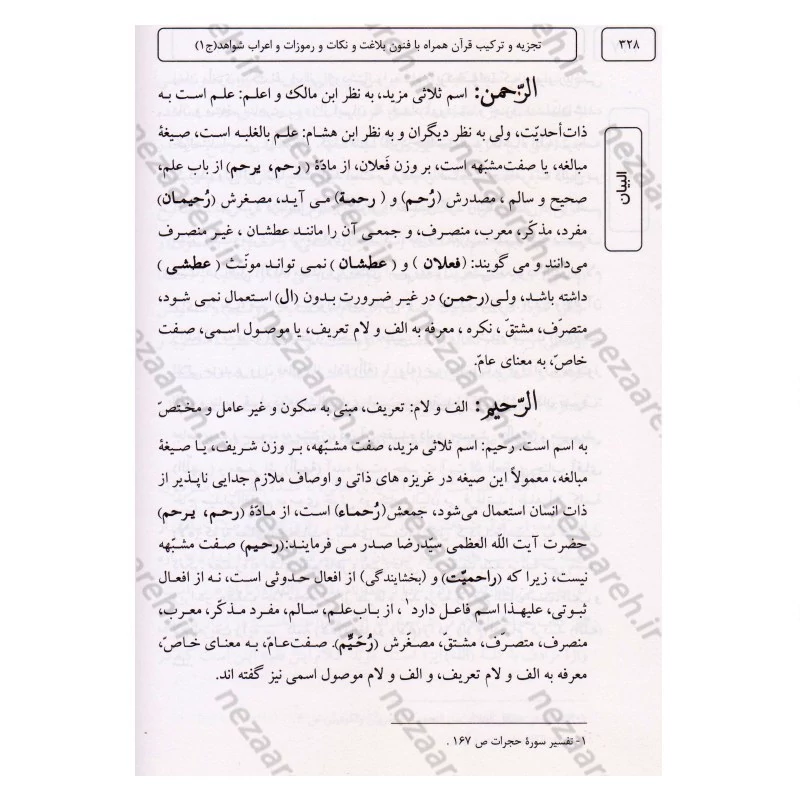 ۳۲۸
تجزیه و ترکیب قرآن همراه با فنون بلاغت و نکات و رموزات و اعراب شواهد(ج۱)
البیان
الرّحمن: اسم ثلاثی مزید، به نظر ابن مالک و اعلم: علم است به
ذات‌أحدیّت، ولی به نظر دیگران و به نظر ابن هشام: علم بالغلبه است، صیغهٔ
مبالغه، یا صفت‌مشبّهه است، بر وزن فَعلان، از مادّهٔ ( رحم، یرحم) از باب علم،
صحیح و سالم ، مصدرش (رُحم) و ( رحمة) می آید، مصغرش (رُحیمان)
مفرد، مذکّر، معرب، منصرف، و جمعی آن را مانند عطشان ، غیر منصرف
می‌دانند و می گویند: (فعلان ) و ( عطشان ) نمی تواند مونّث ( عطشی )
داشته باشد، ولی(رحمن) در غیر ضرورت بدون (ال) استعمال نمی شود،
متصرّف، مشتقّ ، نکره ، معرفه به الف و لام تعریف، یا موصول اسمی، صفت
خاصّ، به معنای عامّ.
الرّحیم: الف و لام: تعریف، مبنی به سکون و غیر عامل و مختصّ
به اسم است. رحیم: اسم ثلاثی مزید، صفت مشبّهه، بر وزن شریف، یا صیغهٔ
مبالغه، معمولاً این صیغه در غریزه های ذاتی و اوصاف ملازم جدایی ناپذیر از
ذات انسان استعمال می‌شود، جمعش(رُحماء) است، از مادّهٔ (رحم، یرحم)
حضرت آیت الله العظمی سیّدرضا صدر می فرمایند:(رحیم) صفت مشبّهه
نیست، زیرا که (راحمیّت) و (بخشایندگی) از افعال حدوثی است، نه از افعال
ثبوتی، علیهذا اسم فاعل دارد۱، از باب‌علم، سالم، مفرد مذکّر، معرب،
منصرف، متصرّف، مشتقّ، مصغّرش (رُحَیِّم). صفت‌عامّ، به معنای خاصّ،
معرفه به الف و لام تعریف، و الف و لام موصول اسمی نیز گفته اند.
۱- تفسیر سورهٔ حجرات ص ۱۶۷ .
nezaareh.ir